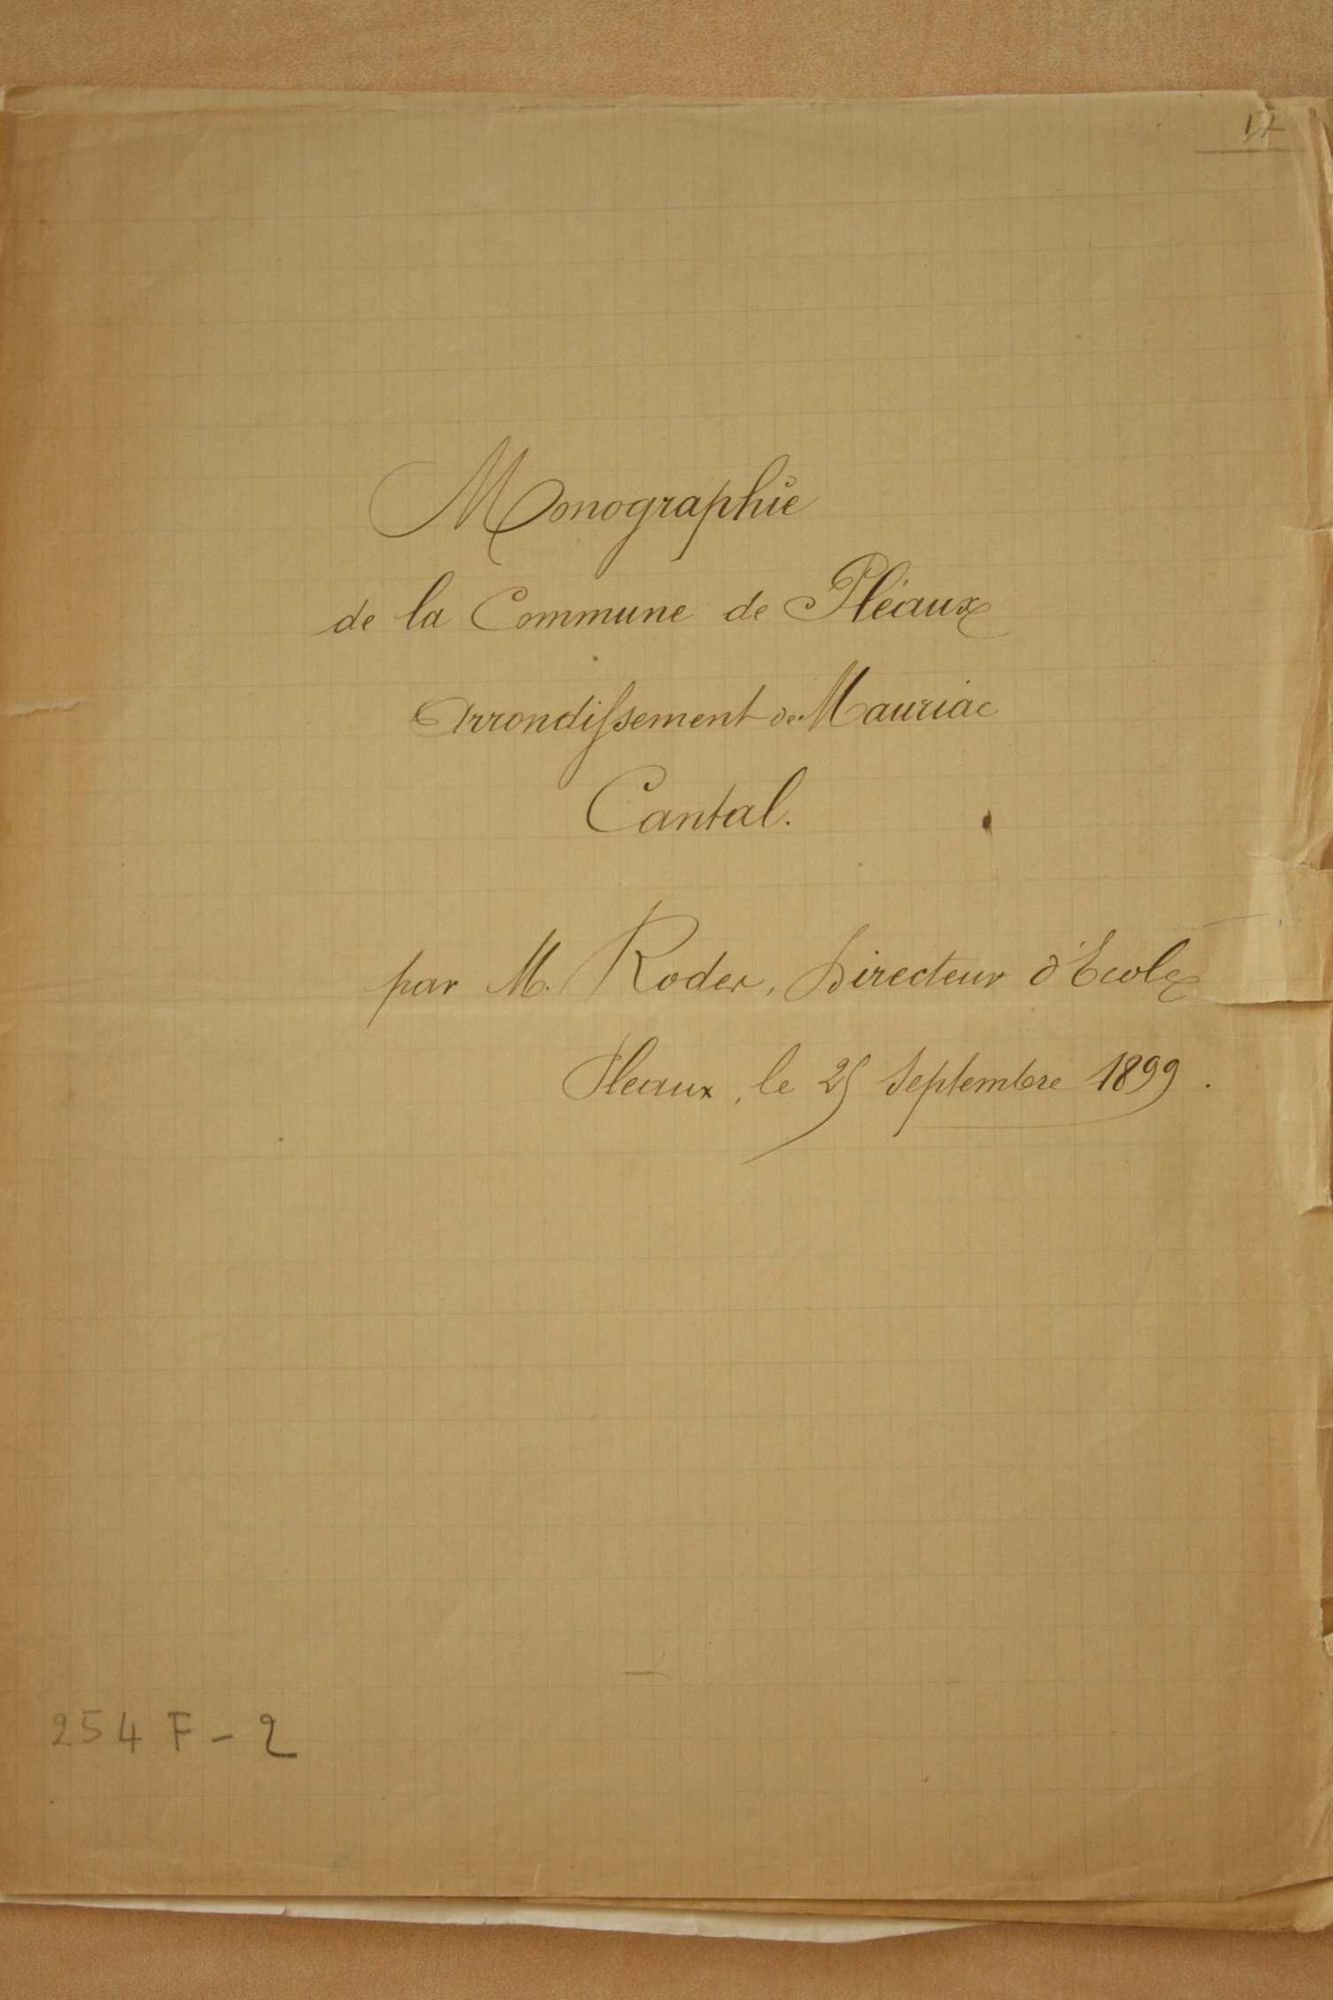 17
Monographie
de la Commune de Pléaux
Arrondissement de Mauriac
Cantal.
par M. Roder, Directeur d'Ecole
Pleaux, le 25 Septembre 1899.
254 F - 2